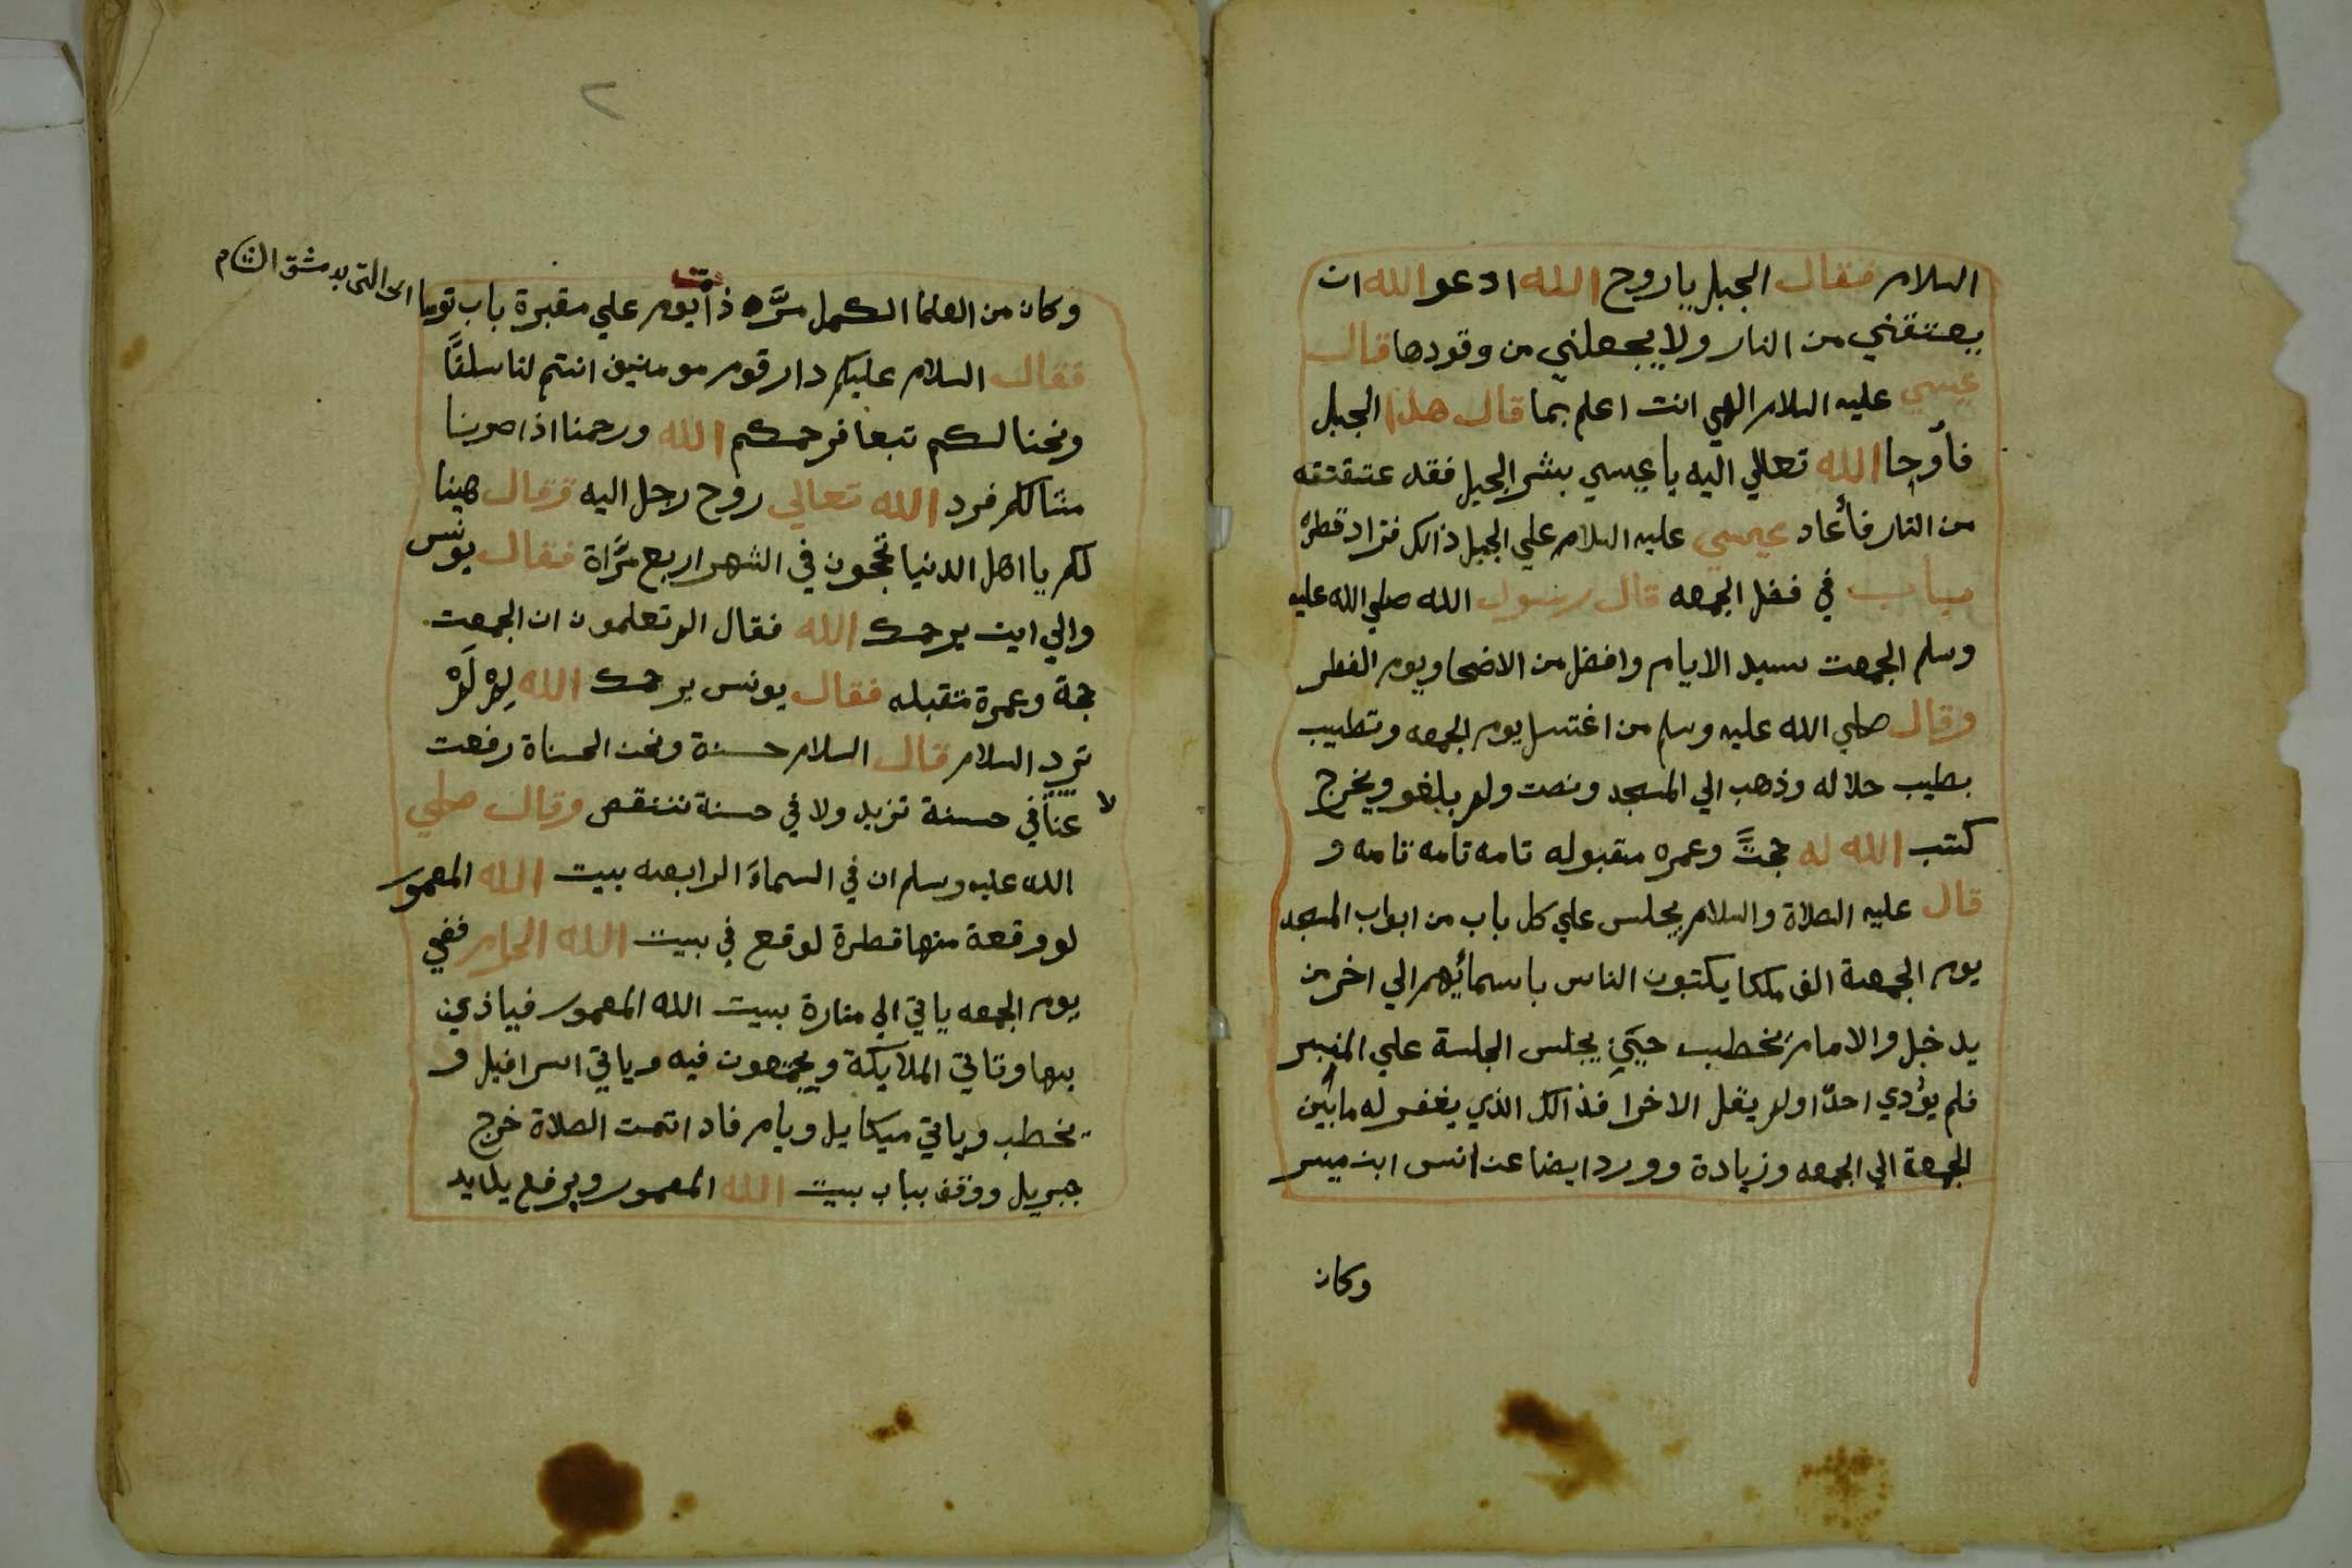 السلام فقال الجبل ياروح الله ادعوا الله ان
يعتقني من النار ولا يجعلني من وقودها قال
عيسي عليه السلام الهي انت اعلم بما قال هذا الجبل
فأوحا الله تعالي اليه يا عيسي بشر الجبل فقد عتقته
من النار فأعاد عيسي عليه السلام علي الجبل ذالك فزاد قطره
باب في فضل الجمعه قال رسول الله صلي الله عليه
وسلم الجمعت سيد الايام وافضل من الاضحا ويوم الفطر
وقال صلي الله عليه وسلم من اغتسل يوم الجمعه وتطيب
بطيب حلاله وذهب الي المسجد ونصت ولم يلغو ويخرج
كتب الله له حجتً وعمره مقبوله تامه تامه تامه و
قال عليه الصلاة والسلام يجلس علي كل باب من ابواب المسجد
يوم الجمعة الف ملكا يكتبون الناس باسمائهم الي اخر من
يدخل والامام يخطب حتي يجلس الجلسة علي المنبر
فلم يؤدي احدًا ولم يقل الاخرا فذالك الذي يغفر له مابين
الجمعة الي الجمعه وزيادة وورد ايضا عن انس ابن ميسر
وكان
٢
وكان من العلما الكمل مرَّه ذات يوم علي مقبرة باب توما التي بدمشق الشام
فقال السلام عليكم دار قوم مومنين انتم لنا سلفًا
ونحنا لكم تبعا فرحمكم الله ورحمنا اذا صرنا
مثالكم فرد الله تعالي روح رجل اليه فقال هينا
لكم يا اهل الدنيا تحجون في الشهر اربع مرَّاة فقال يونس
والي اين يرحمك الله فقال الم تعلمون ان الجمعت
حجة وعمرة متقبله فقال يونس يرحمك الله لِمَ لَمْ
ترد السلام قال السلام حسنة ونحن الحسناة رفعت
عنا لا في حسنة تزيد ولا في حسنة تنتقص وقال صلي
الله عليه وسلم ان في السماء الرابعه بيت الله المعمور
لو وقعة منها قطرة لوقع في بيت الله الحرام ففي
يوم الجمعه ياتي الي منارة بيت الله المعمور فياذن
بها وتاتي الملايكة ويجتمعون فيه وياتي اسرافيل و
يخطب وياتي ميكايل ويام فاد اتمت الصلاة خرج
جبريل ووقف بباب بيت الله المعمور ويرفع يدايد